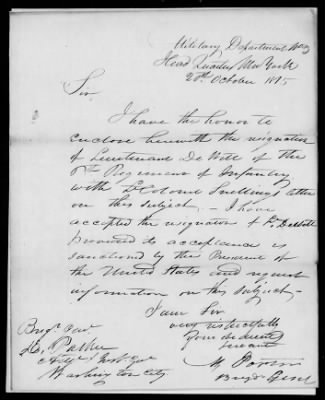 Military Department No 3
Head Quarters New York
20th October 1815
Sir
I have the honor to
enclose herewith the resignation
of Lieutenant De Witt of the
Regiment of Infantry
with Lt Colonel Snellings letter
on this subject. I have
accepted the resignation of Lt DeWitt
provided the acceptance is
sanctioned by the President of
the United States and request
information on this subject.
I am Sir
very respectfully
your obedient
servant
M Porter
Brigd Genl
Brigr Genl
D. Parker
Adjt & Inspr Genl
Washington City